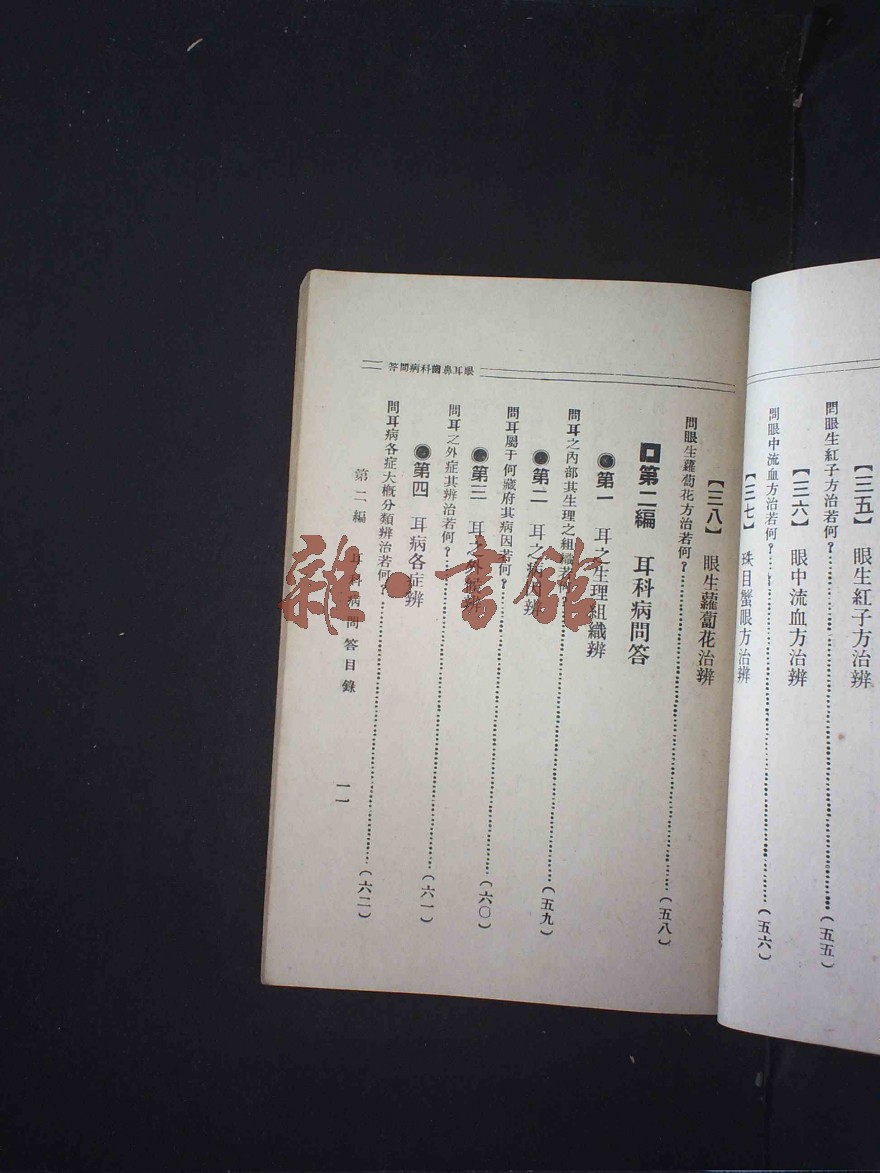 【三五】 眼生紅子方治辨
問眼生紅子方治若何?(五五)
【三六】 眼中流血方治辨
問眼中流血方治若何?(五六)
【三七】 珠目蟹眼方治辨
【三八】 眼生蘿蔔花治辨
問眼生蘿蔔花方治若何?(五八)
第二編 耳科病問答
第一 耳之生理組織辨
問耳之內部其生理之組織若何?(五九)
第二 耳之病因辨
問耳屬于何藏府其病因若何?(六〇)
第三 耳之外症辨
問耳之外症其辨治若何?(六一)
第四 耳病各症辨
問耳病各症大概分類辨治若何?(六二)
眼耳鼻齒科病問答
第二編 耳科病問答目錄
一一
雜·書館